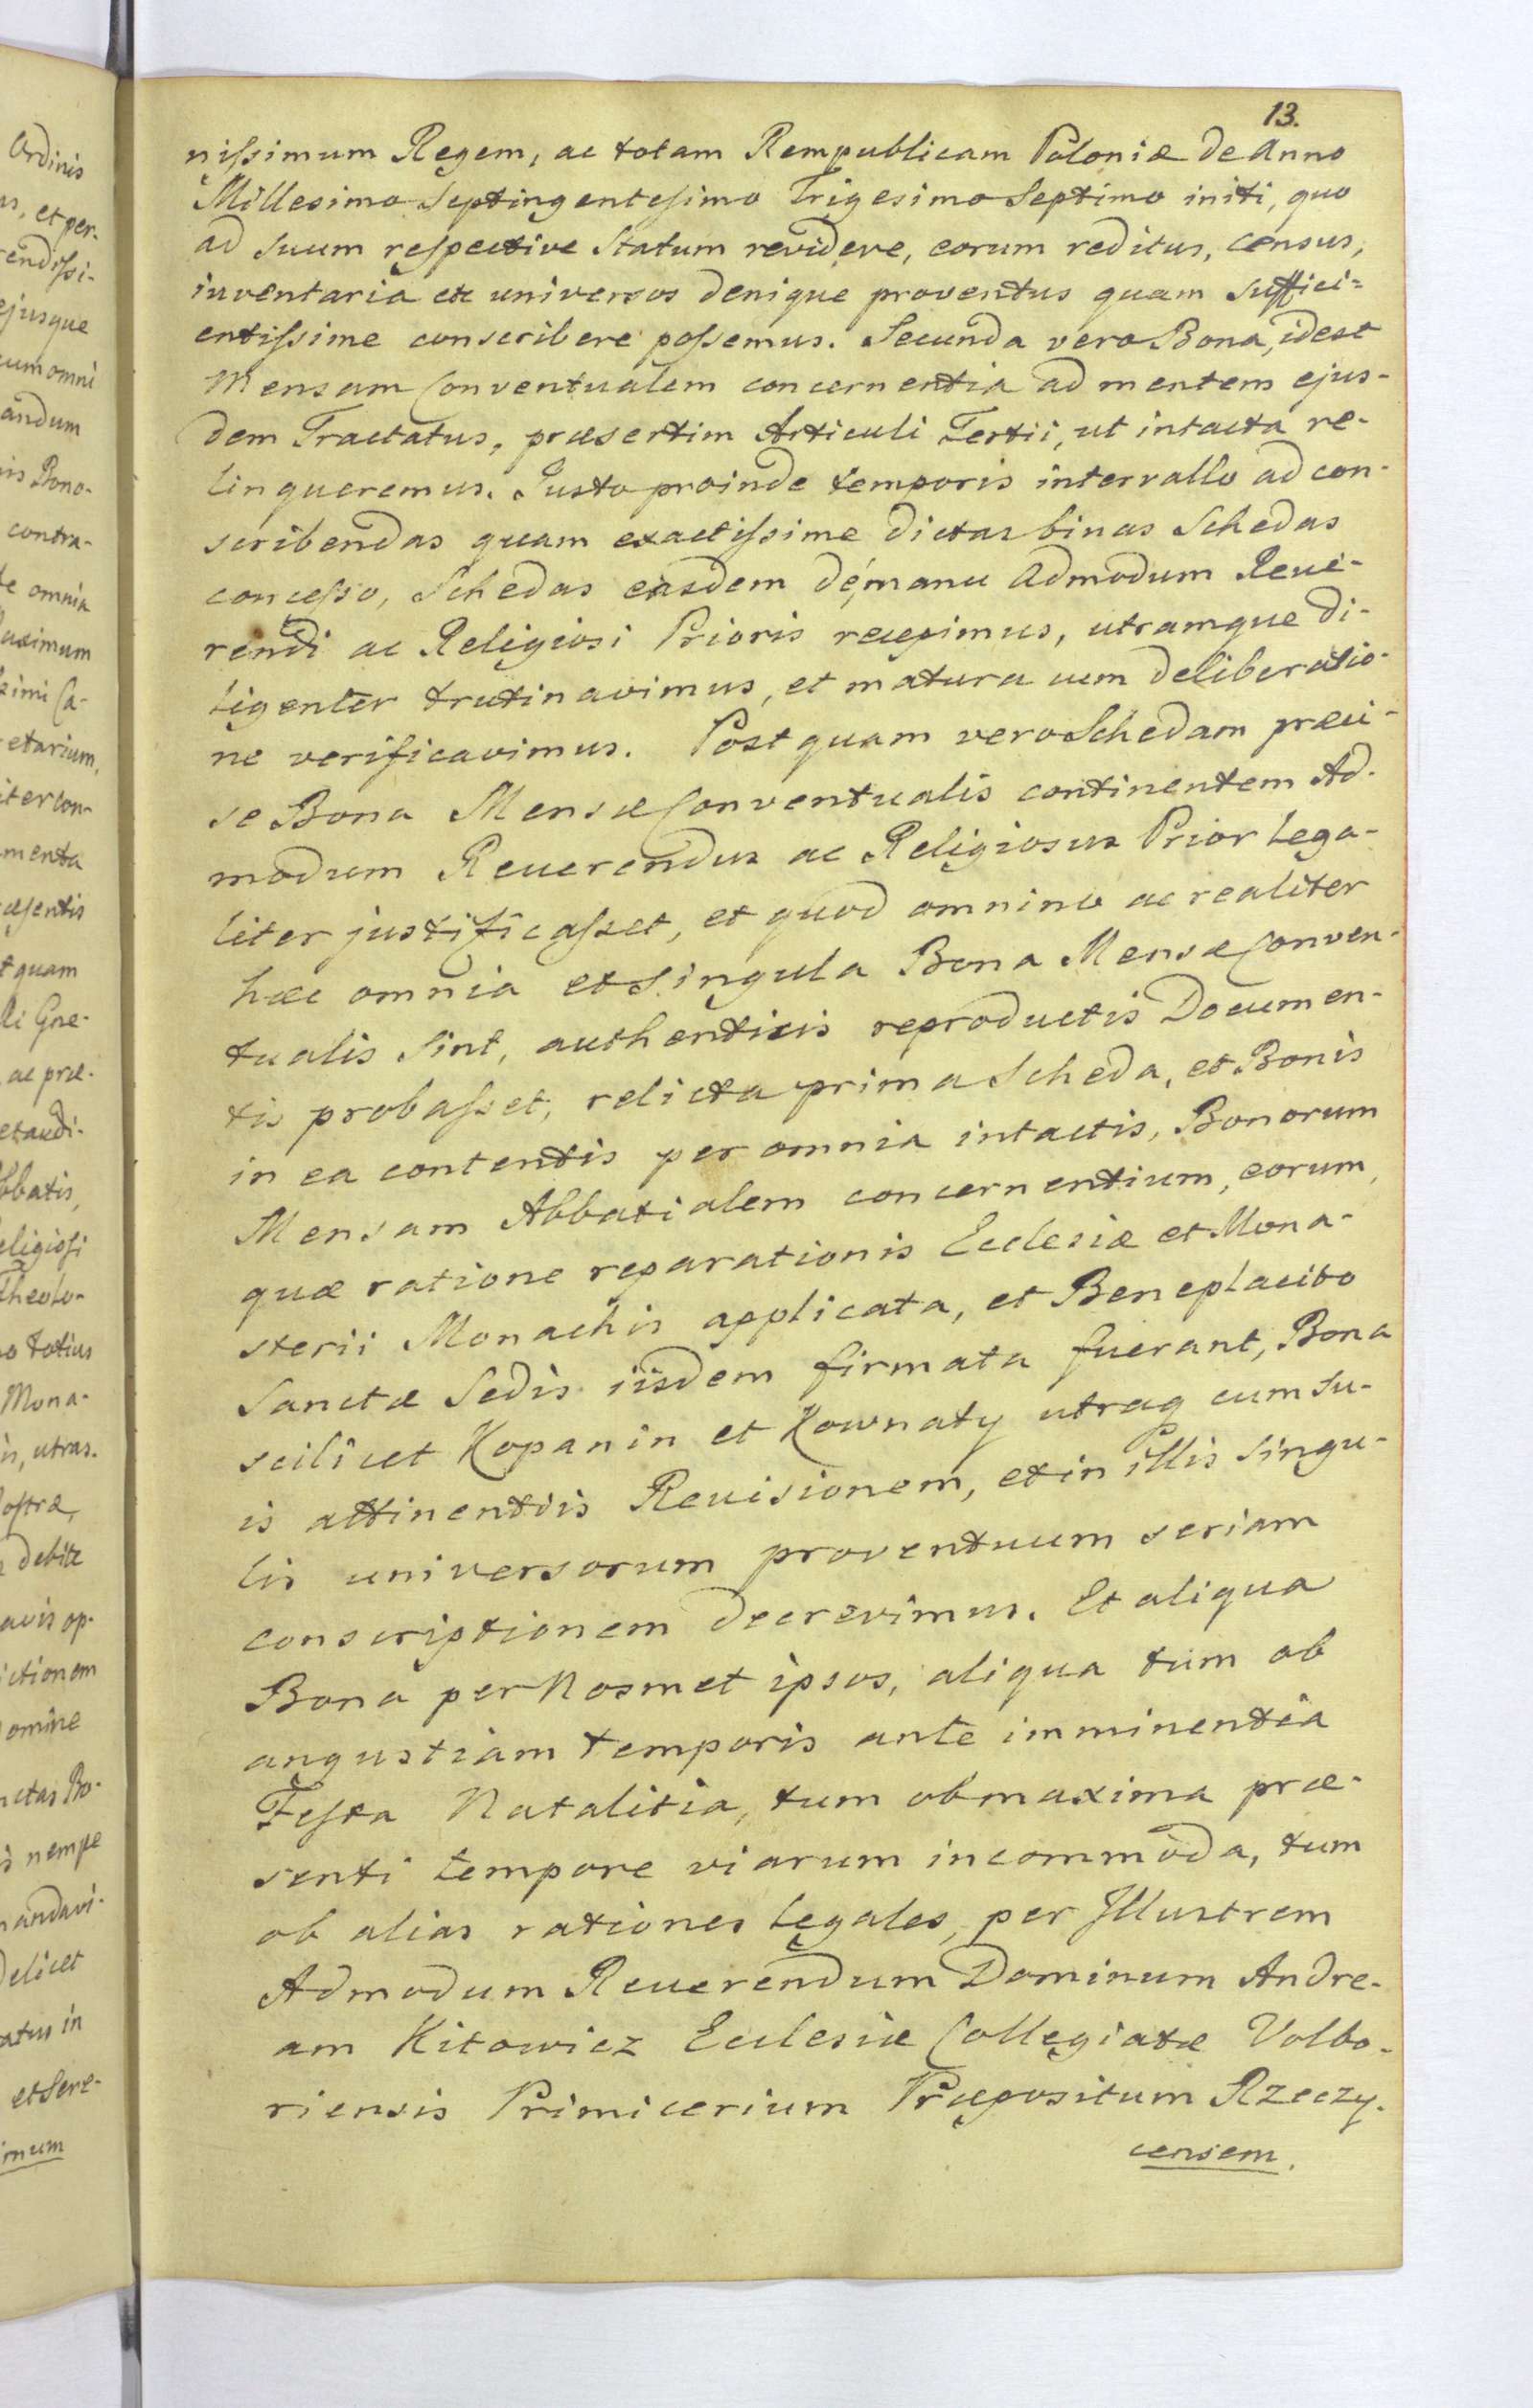 Ordinis
et per-
rendissi-
ejusque
cum omni
andum
Bono-
contra-
omnia
etarium,
menta
quam
ac præ-
Abbatis,
totius
Mona-
utras-
debite
op-
ictionem
nempe
et Sere-
13.
nissimum Regem, ac totam Rempublicam Poloniæ de Anno
Millesimo Septingentesimo Trigesimo Septimo initi, quo
ad suum respective Statum revidere, eorum reditus, census,
inventaria etc universos denique proventus quam suffici=
entissime conscribere possemus. Secunda vero Bona, idest
Mensam Conventualem concernentia ad mentem ejus-
dem Tractatus, præsertim Articuli Tertii, ut intacta re-
linqueremus. Justo proinde temporis intervallo ad con-
scribendas quam exactissime dictas binas Schedas
concesso, Schedas easdem de manu Admodum Reve-
rendi ac Religiosi Prioris recepimus, utramque di-
ligenter trutinavimus, et matura cum deliberatio-
ne verificavimus. Postquam vero Schedam præci-
se Bona Mensæ Conventualis continentem Ad-
modum Reuerendus ac Religiosus Prior lega-
liter justificasset, et quod omnino ac realiter
hæc omnia et singula Bona Mensæ Conven-
tualis sint, authenticis reproductis Documen-
tis probasset, relicta prima Scheda, et Bonis
in ea contentis per omnia intactis, Bonorum
Mensam Abbatialem concernentium, eorum,
quæ ratione reparationis Ecclesiæ et Mona-
sterii Monachis applicata, et Beneplacito
Sanctæ Sedis iisdem firmata fuerant, Bona
scilicet Kopanin et Kownaty utraq cum su-
is attinentiis Reuisionem, et in illis singu-
lis universorum proventuum seriam
conscriptionem decrevimus. Et aliqua
Bona per Nosmet ipsos, aliqua tum ob
angustiam temporis ante imminentia
Festa Natalitia, tum ob maxima præ-
senti tempore viarum incommoda, tum
ob alias rationes legales, per Illustrem
Admodum Reuerendum Dominum Andre-
am Kitowicz Ecclesiæ Collegiatæ Volbo-
riensis Primicerium Præpositum Rzeczy-
censem.